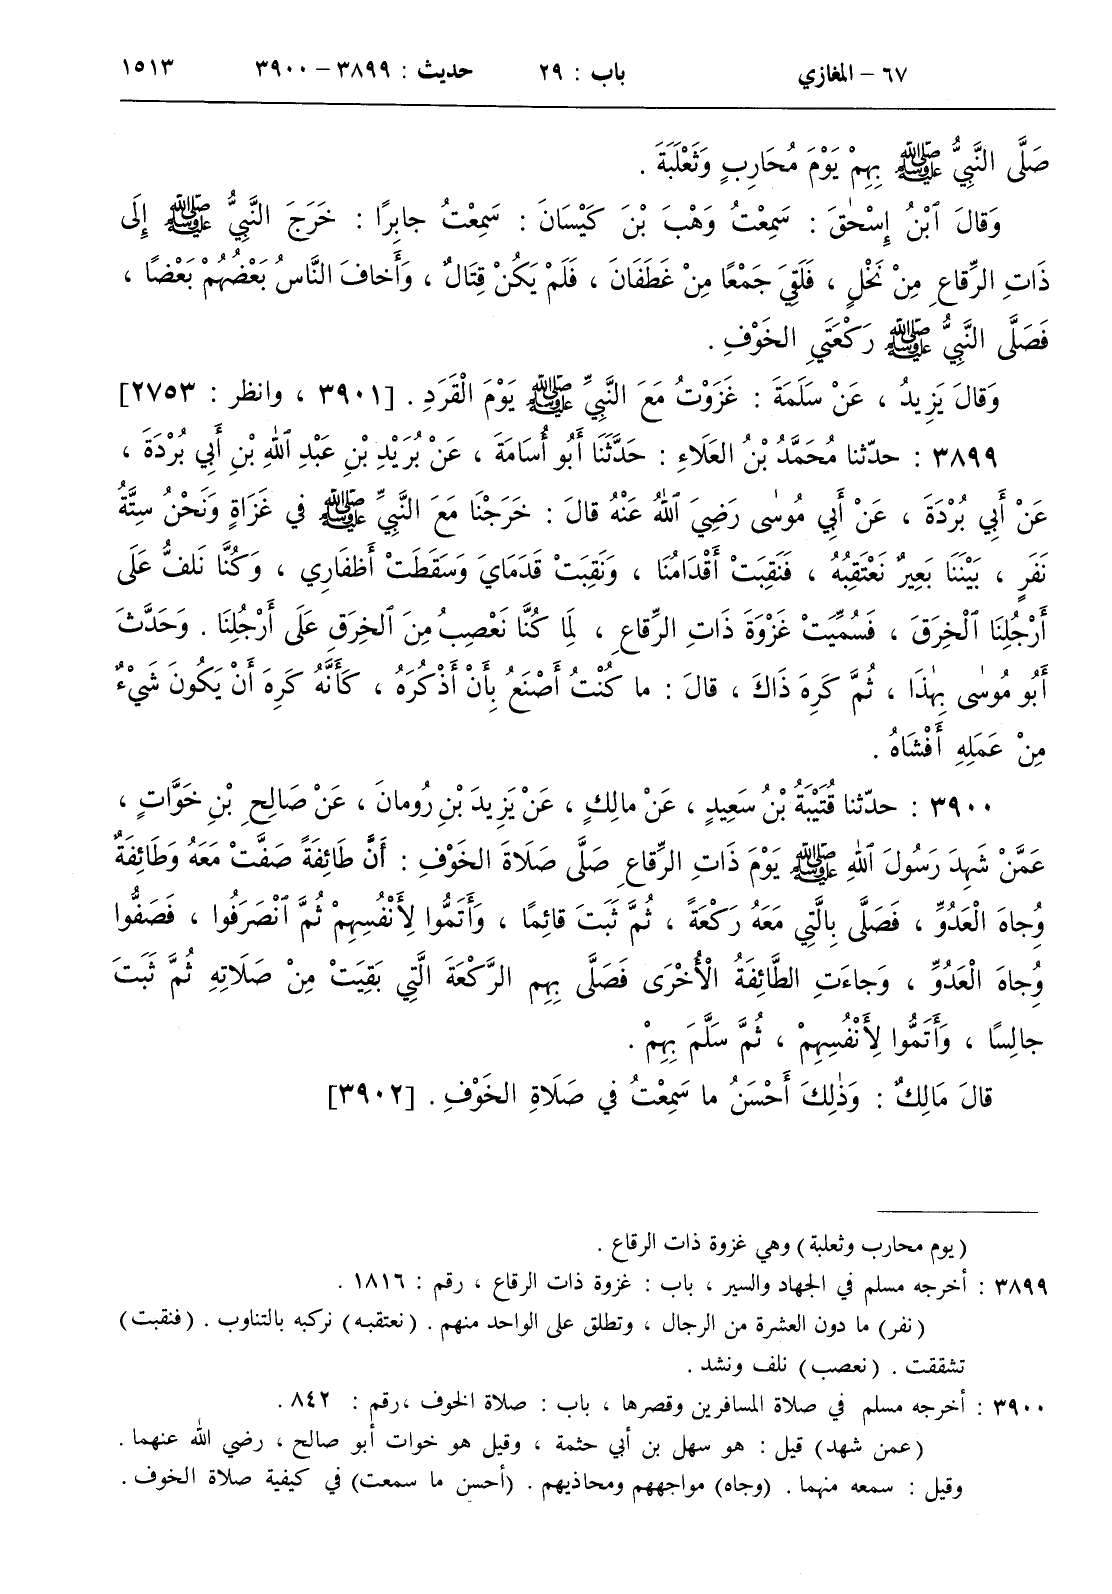 ٦٧ - المغازي باب : ٢٩ حديث : ٣٨٩٩ - ٣٩٠٠ ١٥١٣
صَلَّى النَّبِيُّ ﷺ بِهِمْ يَوْمَ مُحَارِبٍ وَثَعْلَبَةَ .
وَقالَ ٱبْنُ إِسْحٰقَ : سَمِعْتُ وَهْبَ بْنَ كَيْسَانَ : سَمِعْتُ جابِرًا : خَرَجَ النَّبِيُّ ﷺ إِلَى
ذَاتِ الرِّقاعِ مِنْ نَخْلٍ ، فَلَقِيَ جَمْعًا مِنْ غَطَفَانَ ، فَلَمْ يَكُنْ قِتَالٌ ، وَأَخافَ النَّاسُ بَعْضُهُمْ بَعْضًا ،
فَصَلَّى النَّبِيُّ ﷺ رَكْعَتَيِ الخَوْفِ .
وَقالَ يَزِيدُ ، عَنْ سَلَمَةَ : غَزَوْتُ مَعَ النَّبِيِّ ﷺ يَوْمَ الْقَرَدِ . [٣٩٠١ ، وانظر : ٢٧٥٣]
٣٨٩٩ : حدّثنا مُحَمَّدُ بْنُ العَلَاءِ : حَدَّثَنَا أَبُو أُسَامَةَ ، عَنْ بُرَيْدِ بْنِ عَبْدِ ٱللهِ بْنِ أَبِي بُرْدَةَ ،
عَنْ أَبِي بُرْدَةَ ، عَنْ أَبِي مُوسٰى رَضِيَ ٱللهُ عَنْهُ قالَ : خَرَجْنَا مَعَ النَّبِيِّ ﷺ في غَزَاةٍ وَنَحْنُ سِتَّةُ
نَفَرٍ ، بَيْنَنَا بَعِيرٌ نَعْتَقِبُهُ ، فَنَقِبَتْ أَقْدَامُنَا ، وَنَقِبَتْ قَدَمَايَ وَسَقَطَتْ أَظْفَارِي ، وَكُنَّا نَلفُّ عَلَى
أَرْجُلِنَا ٱلْخِرَقَ ، فَسُمِّيَتْ غَزْوَةَ ذَاتِ الرِّقاعِ ، لِمَا كُنَّا نَعْصِبُ مِنَ ٱلخِرَقِ عَلَى أَرْجُلِنَا . وَحَدَّثَ
أَبُو مُوسٰى بِهٰذَا ، ثُمَّ كَرِهَ ذَاكَ ، قالَ : ما كُنْتُ أَصْنَعُ بِأَنْ أَذْكُرَهُ ، كَأَنَّهُ كَرِهَ أَنْ يَكُونَ شَيْءٌ
مِنْ عَمَلِهِ أَفْشَاهُ .
٣٩٠٠ : حدّثنا قُتَيْبَةُ بْنُ سَعِيدٍ ، عَنْ مالِكٍ ، عَنْ يَزِيدَ بْنِ رُومانَ ، عَنْ صَالِحِ بْنِ خَوَّاتٍ ،
عَمَّنْ شَهِدَ رَسُولَ ٱللهِ ﷺ يَوْمَ ذَاتِ الرِّقاعِ صَلَّى صَلَاةَ الخَوْفِ : أَنَّ طَائِفَةً صَفَّتْ مَعَهُ وَطَائِفَةٌ
وُجاهَ الْعَدُوِّ ، فَصَلَّى بِالَّتِي مَعَهُ رَكْعَةً ، ثُمَّ ثَبَتَ قائِمًا ، وَأَتَمُّوا لِأَنْفُسِهِمْ ثُمَّ ٱنْصَرَفُوا ، فَصَفُّوا
وُجاهَ الْعَدُوِّ ، وَجاءَتِ الطَّائِفَةُ الْأُخْرَى فَصَلَّى بِهِم الرَّكْعَةَ الَّتِي بَقِيَتْ مِنْ صَلَاتِهِ ثُمَّ ثَبَتَ
جالِسًا ، وَأَتَمُّوا لِأَنْفُسِهِمْ ، ثُمَّ سَلَّمَ بِهِمْ .
قالَ مَالِكٌ : وَذٰلِكَ أَحْسَنُ ما سَمِعْتُ في صَلَاةِ الخَوْفِ . [٣٩٠٢]
(يوم محارب وثعلبة) وهي غزوة ذات الرقاع .
٣٨٩٩ : أخرجه مسلم في الجهاد والسير ، باب : غزوة ذات الرقاع ، رقم : ١٨١٦ .
(نفر) ما دون العشرة من الرجال ، وتطلق على الواحد منهم . (نعتقبه) نركبه بالتناوب . (فنقبت)
تشققت . (نعصب) نلف ونشد .
٣٩٠٠ : أخرجه مسلم في صلاة المسافرين وقصرها ، باب : صلاة الخوف ، رقم : ٨٤٢ .
(عمن شهد) قيل : هو سهل بن أبي حثمة ، وقيل هو خوات أبو صالح ، رضي الله عنهما .
وقيل : سمعه منهما . (وجاه) مواجههم ومحاذيهم . (أحسن ما سمعت) في كيفية صلاة الخوف .